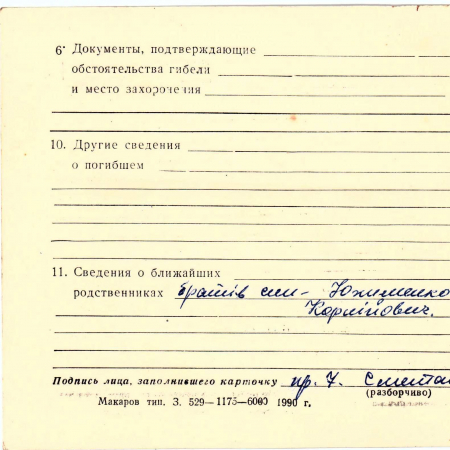 6· Документы, подтверждающие
обстоятельства гибели
и место захоронения
10. Другие сведения
о погибшем
11. Сведения о ближайших
родственниках братів син - Юхименко
Корнійович.
Подпись лица, заполнившего карточку пр. 7. Сметан
(разборчиво)
Макаров тип. З. 529—1175—6000 1990 г.